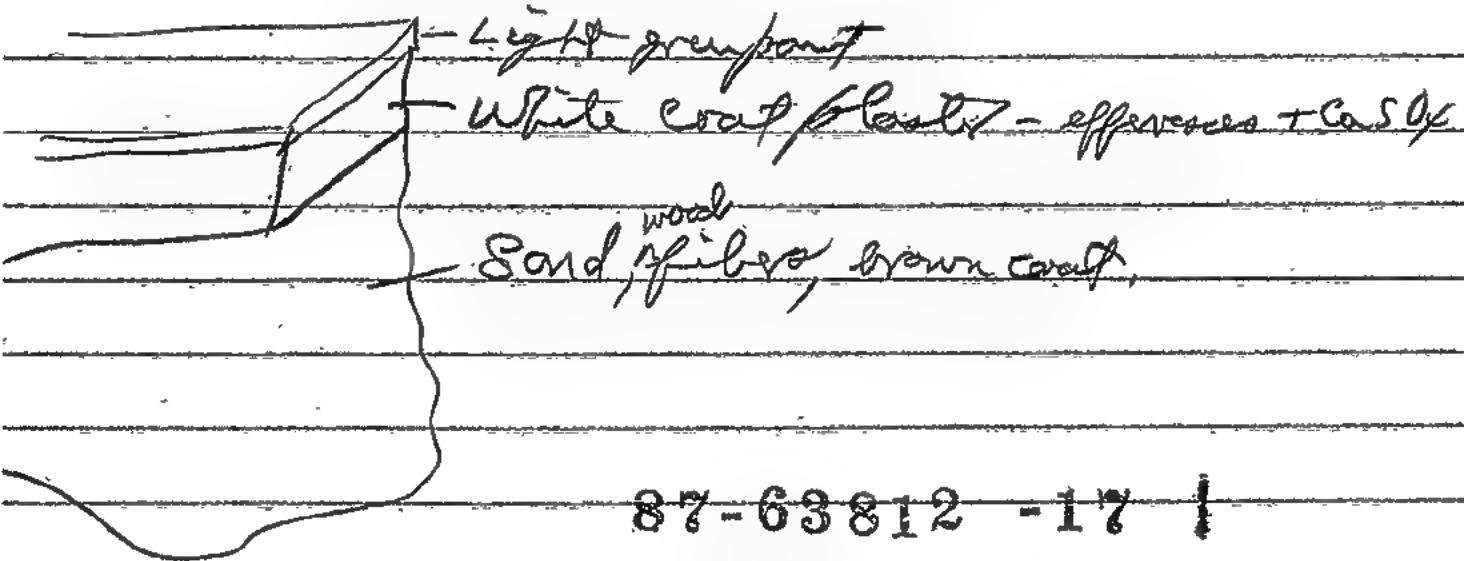 Light green paint
White coat plaster - effervesces + CaSO4
wood
Sand, fiber, brown coat.
87-63812 -17